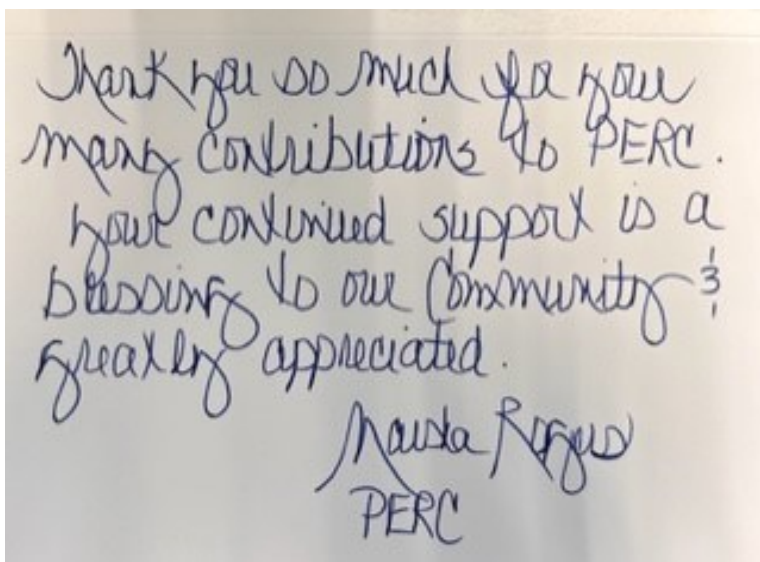 Thank you so much for your
many contributions to PERC.
your continued support is a
blessing to our Community &
greatly appreciated.
Rogus
PERC